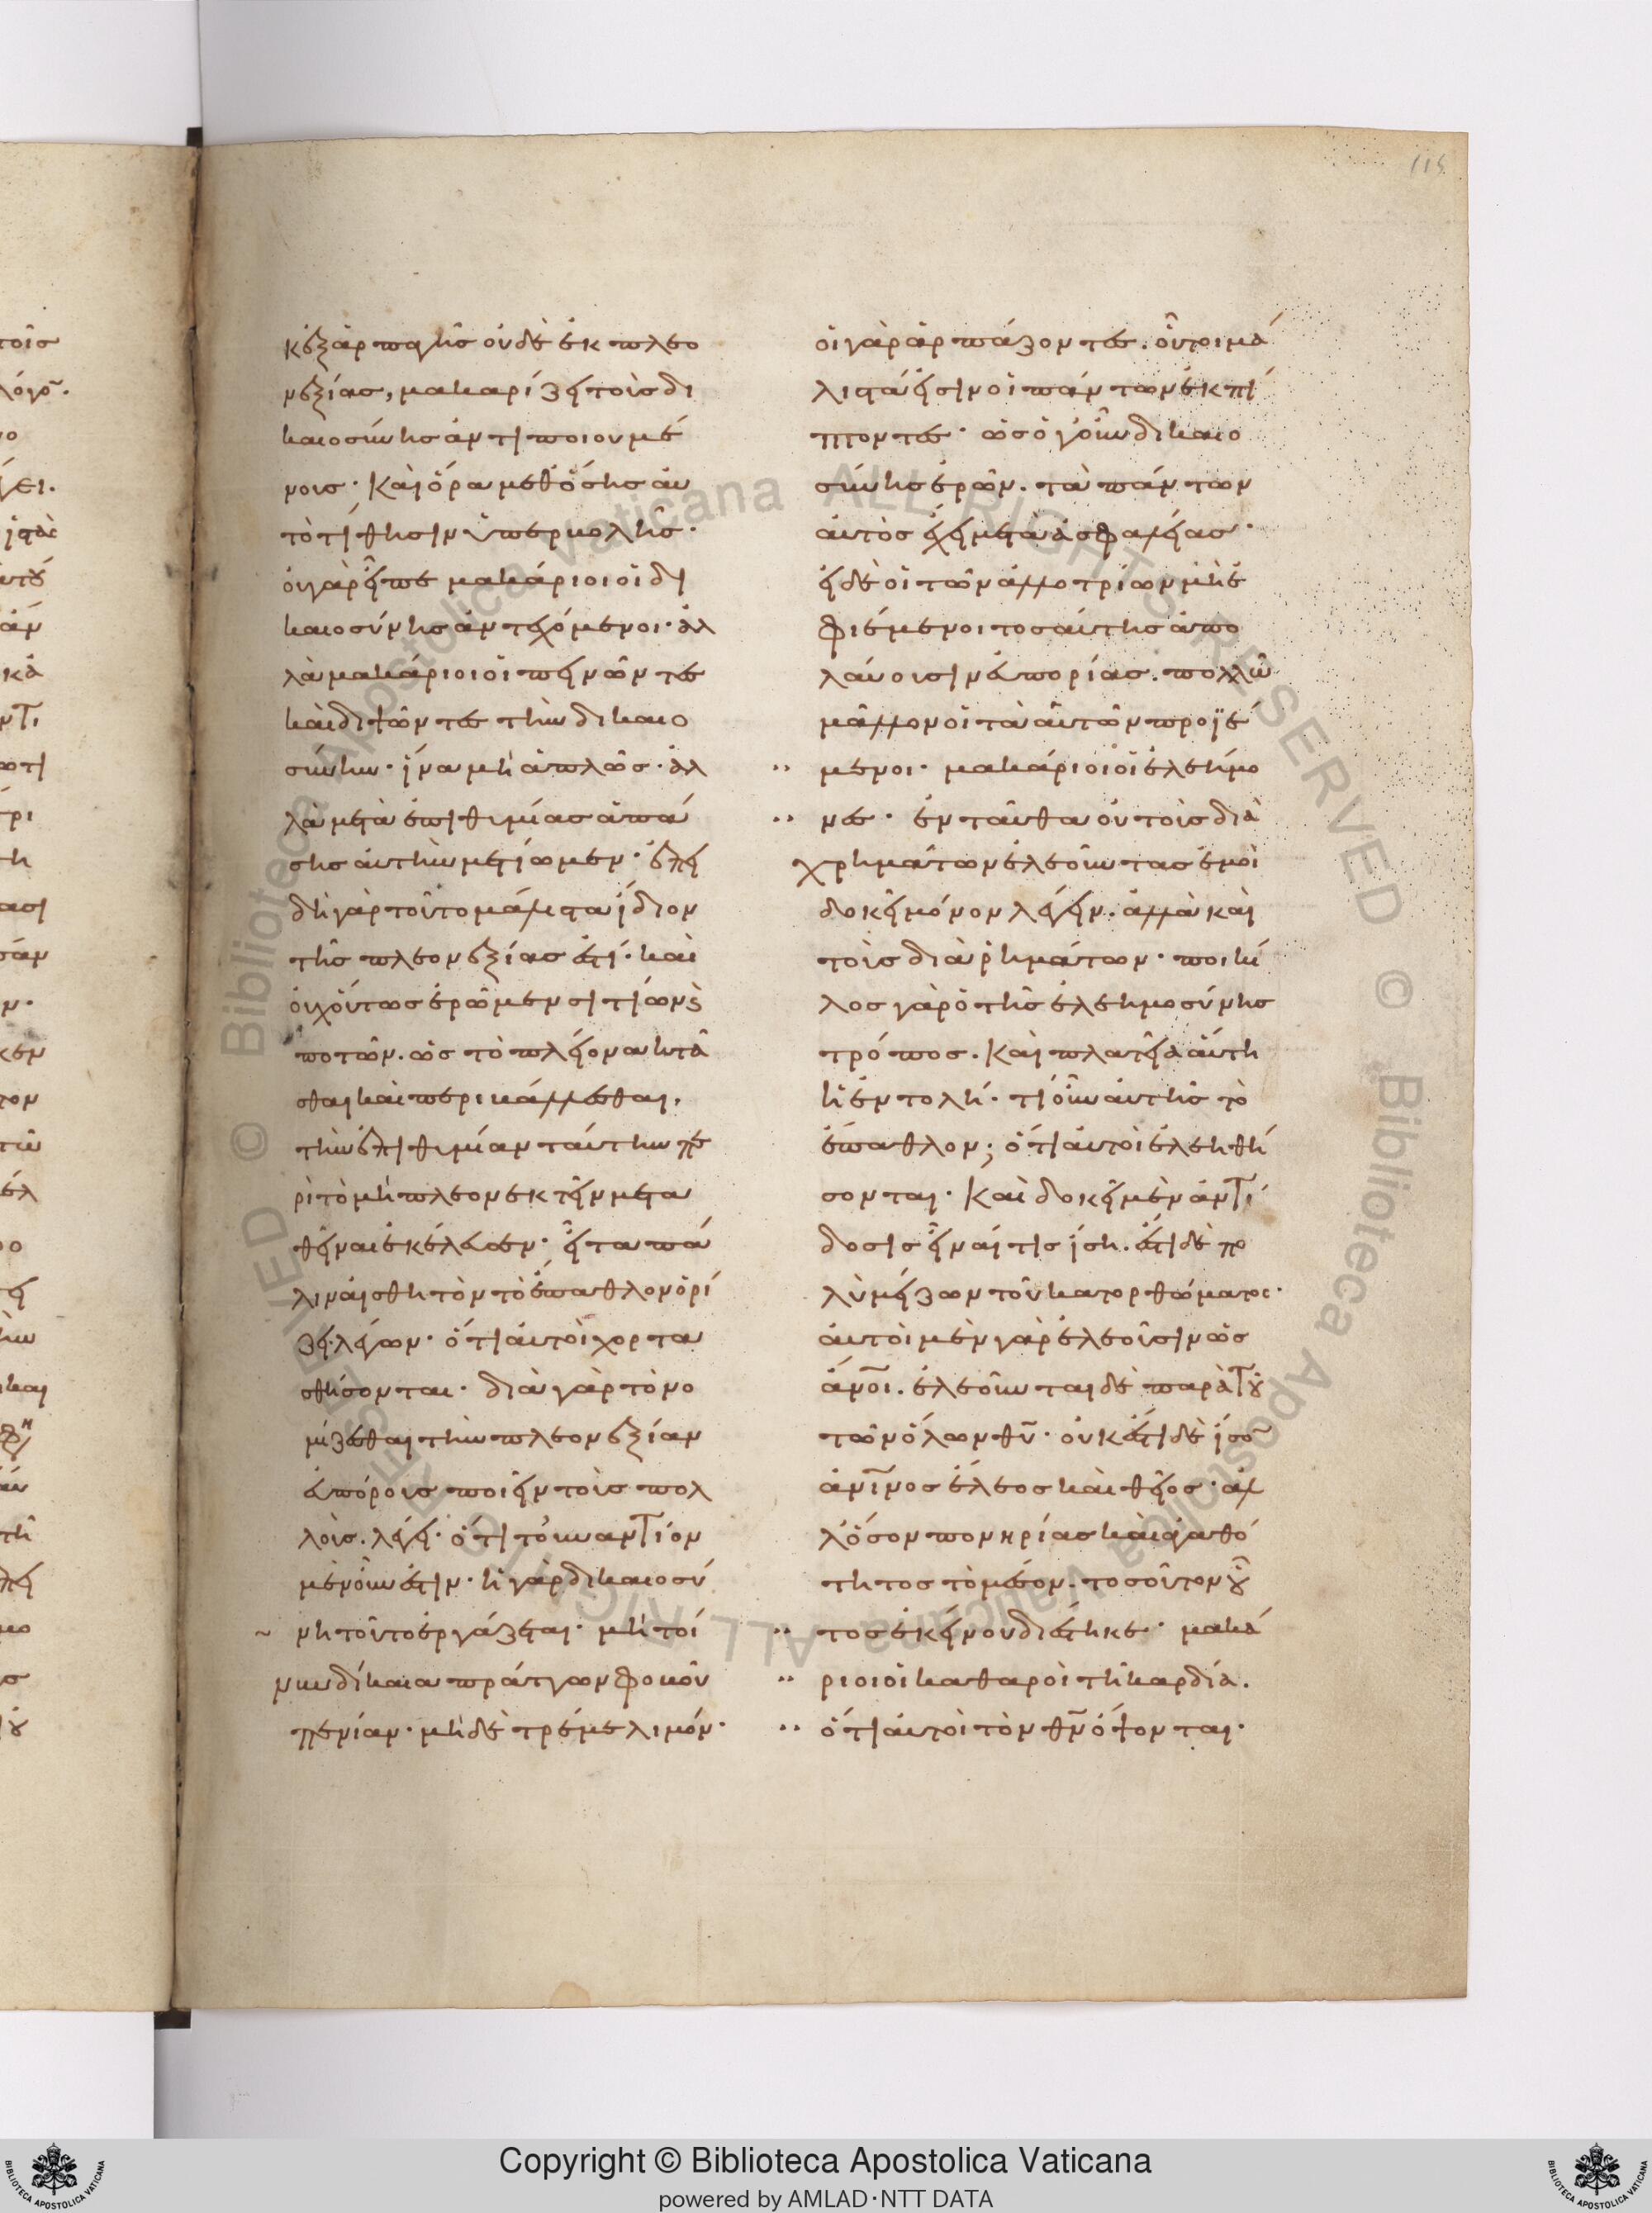 115
κ ἐξ ἁρπαγῆς οὐδὲ ἐκ πλεο
νεξίας, μακαρίζει τοὺς δι
καιοσύνης ἀντιποιουμέ
νους· Καὶ ὅρα μεθ' ὅσης αὐ
τὸ τίθησιν ὑπερβολῆς·
οὐ γὰρ εἶπε μακάριοι οἱ δι
καιοσύνης ἀντεχόμενοι· ἀλ
λὰ μακάριοι οἱ πεινῶντες
καὶ διψῶντες τὴν δικαιο
σύνην· ἵνα μὴ ἁπλῶς· ἀλ
λὰ μετὰ ἐπιθυμίας ἁπά
σης αὐτὴν μετίωμεν· ἐπει
δὴ γὰρ τοῦτο μάλιστα ἴδιον
τῆς πλεονεξίας ἐστί· καὶ
οὐχ οὕτως ἐρῶμεν σιτίων ϗ
ποτῶν. ὡς τὸ πλείονα κτᾶ
σθαι καὶ περιβάλλεσθαι,
τὴν ἐπιθυμίαν ταύτην πε
ρὶ τὸ μὴ πλεονεκτεῖν μετα
θεῖναι ἐκέλευσεν· εἶτα πά
λιν αἰσθητὸν τὸ ἔπαθλον ὁρί
ζει· λέγων· ὅτι αὐτοὶ χορτα
σθήσονται· διὰ γὰρ τὸ νο
μίζεσθαι τὴν πλεονεξίαν
εὐπόρους ποιεῖν τοὺς πολ
λοὺς. λέγει· ὅτι τοὐναντίον
μὲν οὖν ἐστιν· ἡ γὰρ δικαιοσύ
νη τοῦτο ἐργάζεται· μὴ τοί
νυν δίκαια πράττων φοβοῦ
πενίαν· μὴ δὲ τρέμε λιμόν·
οἱ γὰρ ἁρπάζοντες. οὗτοι μά
λιστα εἰσὶν οἱ πάντων ἐκπί
πτοντες· ὡς ὅ γ' οὖν δικαιο
σύνης ἐρῶν. τὰ πάντων
αὐτὸς ἔχει μετὰ ἀσφαλείας·
εἰ δὲ οἱ τῶν ἀλλοτρίων μὴ ἐ
φιέμενοι τοσαύτης ἀπο
λαύουσιν εὐπορίας. πολλῶ
μᾶλλον οἱ τὰ αὐτῶν προϊέ
μενοι· μακάριοι οἱ ἐλεήμο
νες· ἐνταῦθα οὐ τοὺς διὰ
χρημάτων ἐλεοῦντας ἐμοὶ
δοκεῖ μόνον λέγειν. ἀλλὰ καὶ
τοὺς διὰ ῥημάτων· ποικί
λος γὰρ ὁ τῆς ἐλεημοσύνης
τρόπος. Καὶ πλατεῖα αὕτη
ἡ ἐντολή· τί οὖν αὐτῆς τὸ
ἔπαθλον; ὅτι αὐτοὶ ἐλεηθή
σονται· Καὶ δοκεῖ μὲν ἀντί
δοσις εἶναί τις ἴση. ἔστι δὲ πο
λὺ μείζων τοῦ κατορθώματος·
αὐτοὶ μὲν γὰρ ἐλεοῦσιν ὡς
ἄνοι. ἐλεοῦνται δὲ παρὰ τοῦ
τῶν ὅλων θῦ· οὐκ ἔστι δὲ ἴσον
ἀνινος ἔλεος καὶ θεῖος· ἀλ
λ' ὅσον πονηρίας καὶ ἀγαθό
τητος τὸ μέσον. τοσοῦτον οὗ
τος ἐκείνου διέστηκε· μακά
ριοι οἱ καθαροὶ τῆ καρδία.
ὅτι αὐτοὶ τὸν θν ὄψονται·
Copyright © Biblioteca Apostolica Vaticana
powered by AMLAD·NTT DATA